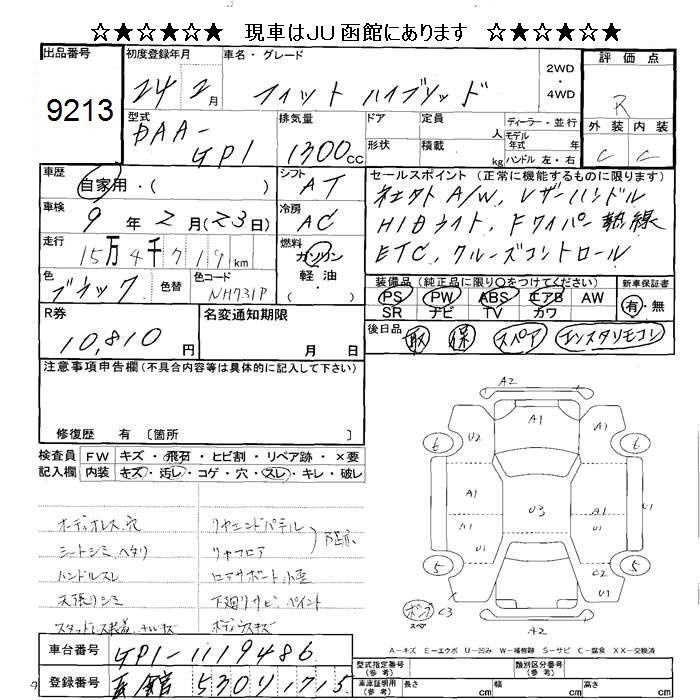 ☆★☆★☆ 現車はJU函館にあります ☆★☆★☆
出品番号 9213
初度登録年月 24年 2月
車名・グレード フィット ハイブリッド
2WD・4WD
評価点 R
外装 内装
C C
型式 DAA-GP1
排気量 1300cc
ドア
形状
定員 人
積載 kg
ディーラー・並行
モデル年式 年式
ハンドル 左・右
車歴 自家用・( )
シフト AT
車検 9年2月(23日)
冷房 AC
走行 15万4千719km
燃料 ガソリン 軽油 ・( )
色 ブラック 色替
色コード NH731P
セールスポイント(正常に機能するものに限ります)
社外A/W、レザーハンドル
HIDライト、Fワイパー熱線
ETC、クルーズコントロール
装備品(純正品に限り○をつけてください)
PS PW ABS エアB AW
SR ナビ TV カワ
新車保証書 有・無
後日品 取 保 スペア
R券 10,810円
名変通知期限 月 日
注意事項申告欄(不具合内容等は具体的に記入して下さい)
修復歴 有 〔箇所
検査員記入欄
FW キズ・飛石・ヒビ割・リペア跡・×要
内装 キズ・汚レ・コゲ・穴・スレ・キレ・破レ
オーディオレス、穴
シートシミ、ヘタリ
ハンドルスレ
天張リシミ
リヤエンドパネル
リヤフロア
ロアサポート小歪
下廻リサビ、ペイント
A2
A1
U2
6 6
A1
A1
U1
U3
A1
U1
U1
5 5
U1
C2
U1
C3
A2
A-キズ E-エクボ U-凹み W-補修跡 S-サビ C-腐食 XX-交換済
車台番号 GP1-1119486
登録番号 函館 530
型式指定番号(参考)
類別区分番号(参考)
車庫証明用(参考) 長さ cm 幅 cm 高さ cm